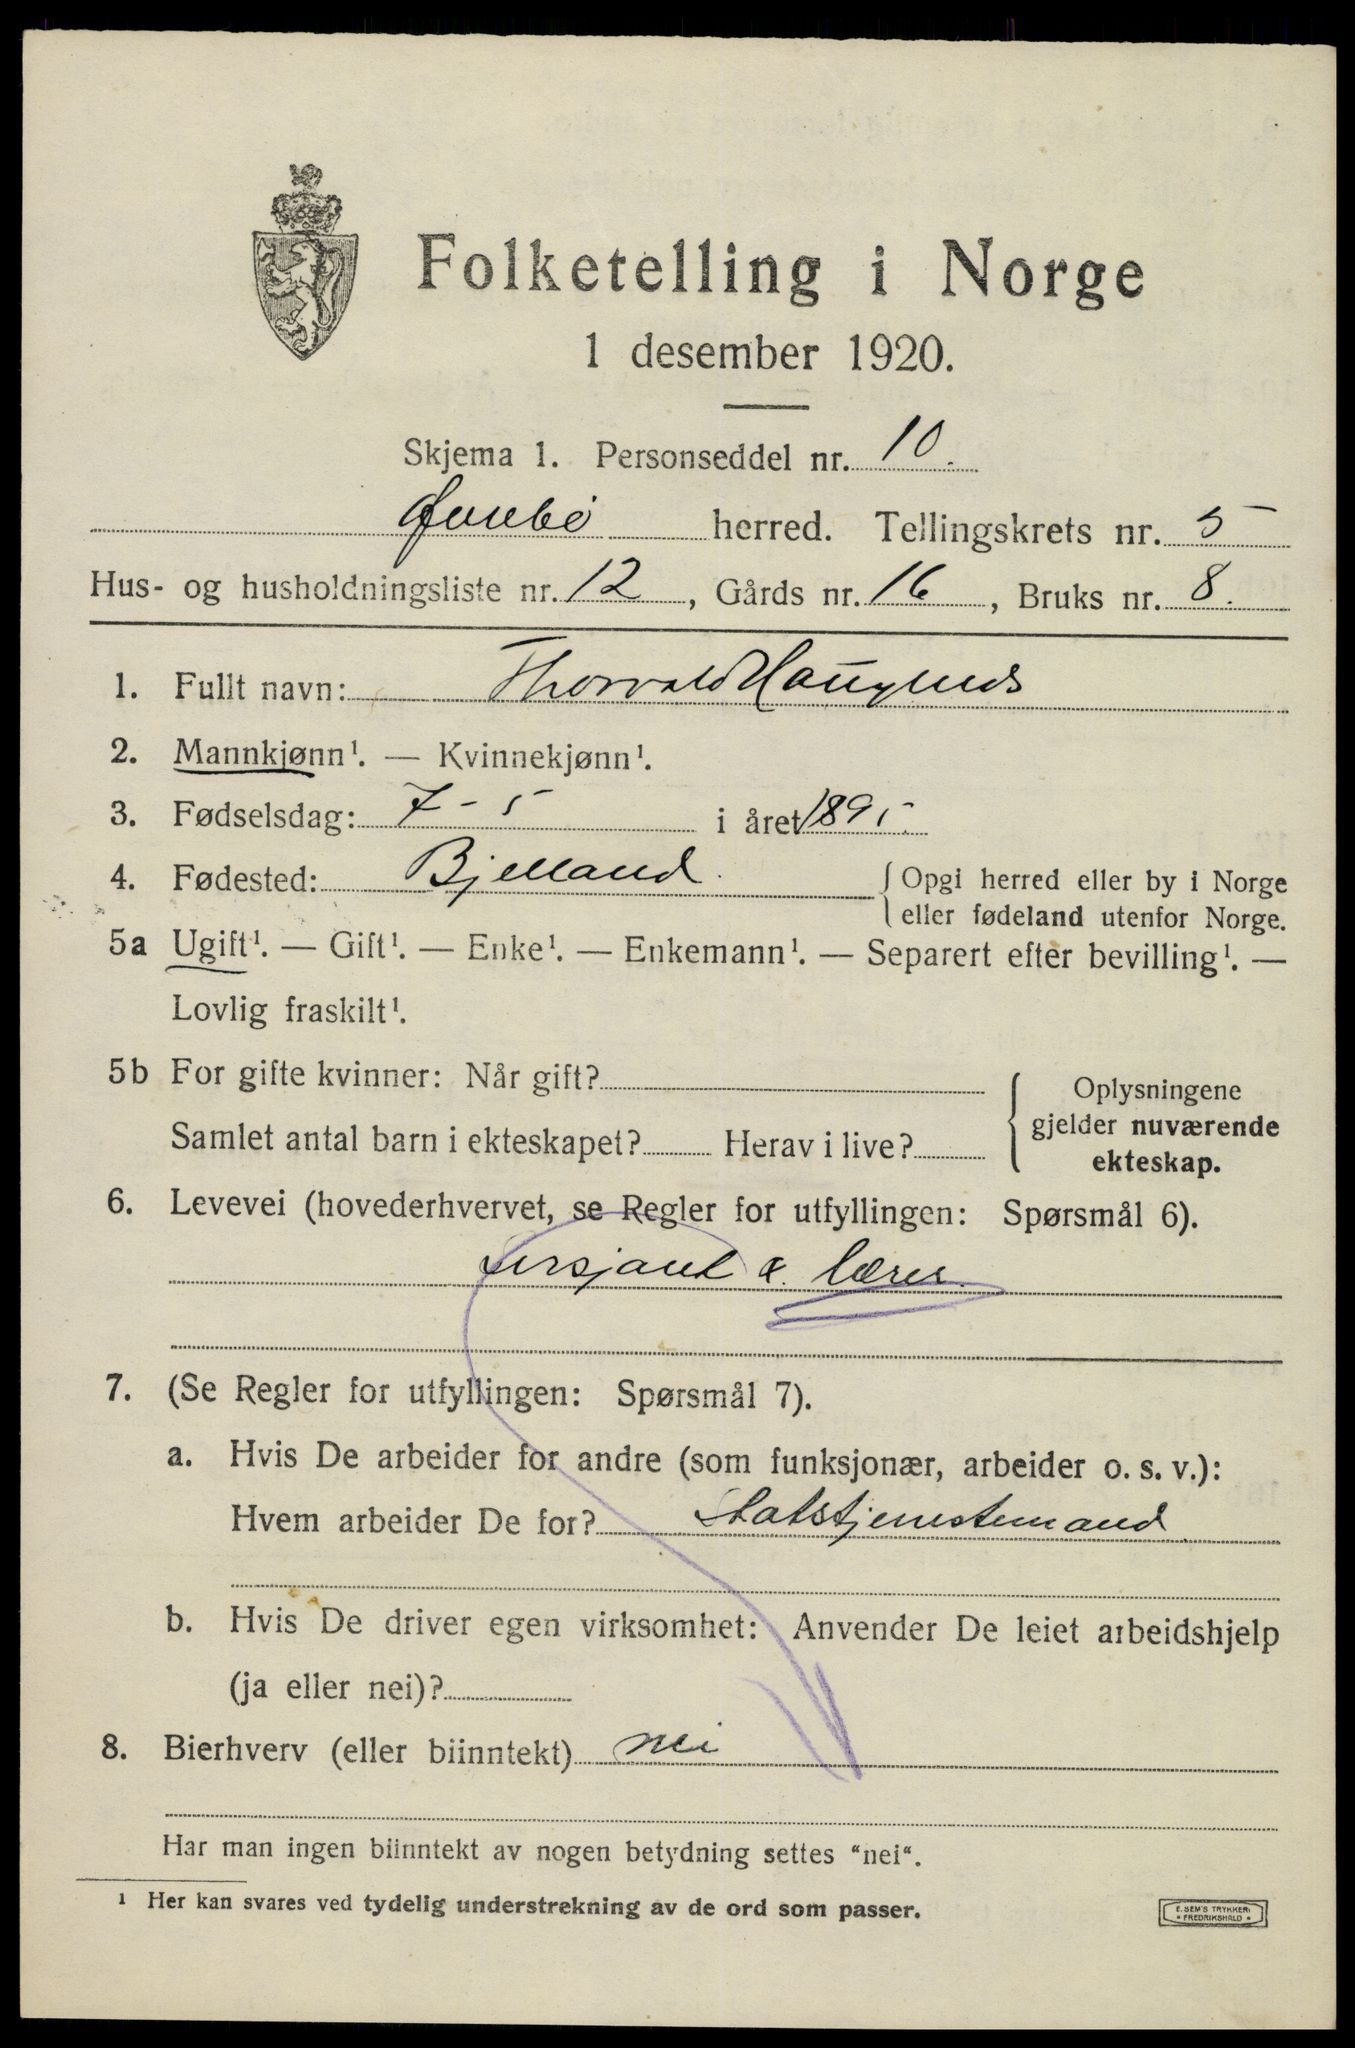 Folketelling i Norge
1 desember 1920.
Skjema 1. Personseddel nr. 10.
Øvrebø herred. Tellingskrets nr. 5
Hus- og husholdningsliste nr. 12, Gårds nr. 16, Bruks nr. 8.
1. Fullt navn: Thorvald Haugland
2. Mannkjønn¹. — Kvinnekjønn¹.
3. Fødselsdag: 7 - 5 i året 1895
4. Fødested: Bjelland. { Opgi herred eller by i Norge
eller fødeland utenfor Norge.
5a Ugift¹. — Gift¹. — Enke¹. — Enkemann¹. — Separert efter bevilling¹. —
Lovlig fraskilt¹.
5b For gifte kvinner: Når gift? { Oplysningene
gjelder nuværende
Samlet antal barn i ekteskapet? Herav i live?
ekteskap.
6. Levevei (hovederhvervet, se Regler for utfyllingen: Spørsmål 6).
Sersjant & lærer.
7. (Se Regler for utfyllingen: Spørsmål 7).
a. Hvis De arbeider for andre (som funksjonær, arbeider o. s. v.):
Hvem arbeider De for? Statstjenestemand
b. Hvis De driver egen virksomhet: Anvender De leiet arbeidshjelp
(ja eller nei)?
8. Bierhverv (eller biinntekt) nei
Har man ingen biinntekt av nogen betydning settes "nei".
¹ Her kan svares ved tydelig understrekning av de ord som passer.
E. SEM'S TRYKKERI
FREDRIKSHALD